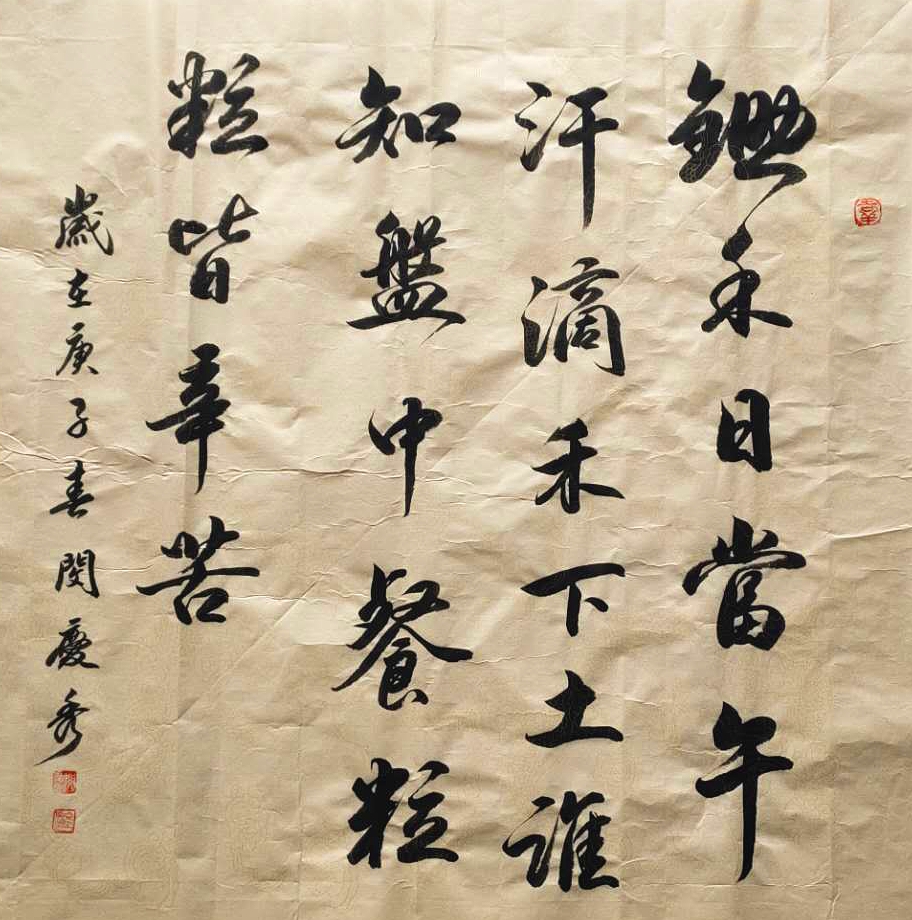 鋤禾日當午
汗滴禾下土誰
知盤中餐粒
粒皆辛苦
歲在庚子春閔慶秀